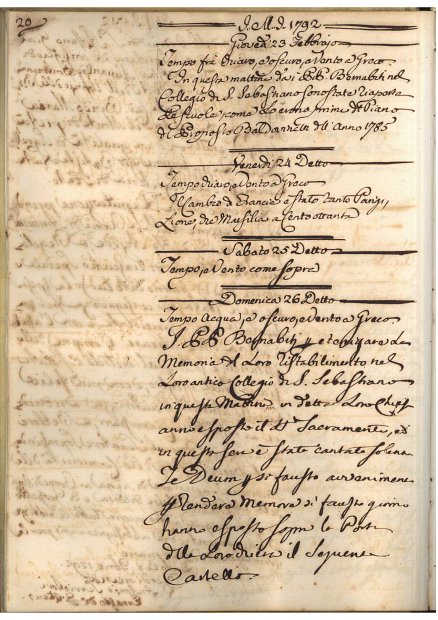 20
J. M. J. 1792
Giovedì 23 Febbrajo
Tempo frà chiaro, e oscuro, e Vento a Greco
In questa mattina da i PP. Bernabiti nel
Collegio di S. Sebastiano sono state riaperte
le scuole, come lo erono prima del
di Pignoflio Baldannetti dell'anno 1785
Venerdì 24 Detto
Tempo chiaro, e Vento a Greco
Il Cambio di Francia è stato tanto Parigi,
Lione, che Marsilia a Cento ottanta
Sabato 25 Detto
Tempo, e Vento come sopra
Domenica 26 Detto
Tempo Acqua, e oscuro, e Vento a Greco
I PP. Bernabiti p
Memoria del Loro ristabilimento nel
Loro antico Collegio di S. Sebastiano
in questa Mattina in detta Loro Chiesa
anno esposto il SS. Sacramento, ed
in questa sera è stato cantato solenne
Te Deum p si fausto avvenimento
p rendere Memoria si fausto giorno
hanno esposto sopra le Porte
delle Loro il seguente
Cartello.